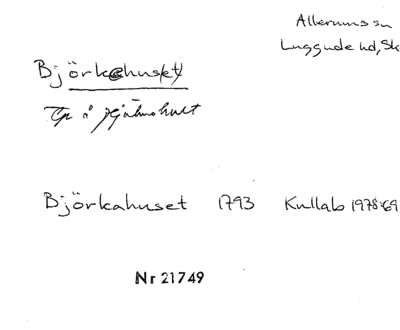 Allerums sn
Luggude hd, Sk
Björkahuset
Tp å Hjälmshult
Björkahuset 1793 Kullab 1978:69
Nr 21749